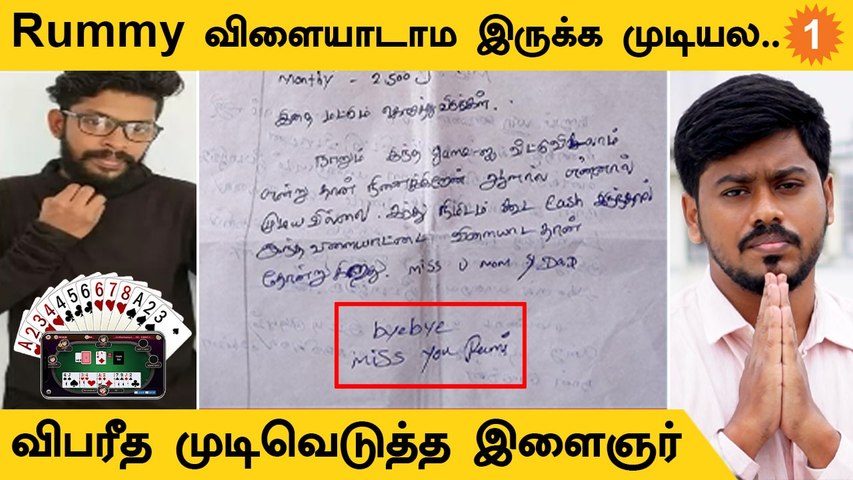 Rummy விளையாடாம இருக்க முடியல.. 1
Monthy - 2,500
இதை மட்டும்
நானும் இந்த game ஐ விட்டுவிடலாம்
என்று தான் நினைக்கிறேன் ஆனால் என்னால்
முடியவில்லை. ஐந்து நிமிடம் கூட Cash இருந்தால்
இந்த விளையாட்டை விளையாட தான்
தோன்றுகிறது. miss u mom & Dad
byebye
miss you
A 2 3 4 4 5 6 6 7 8 A 2 3
விபரீத முடிவெடுத்த இளைஞர்